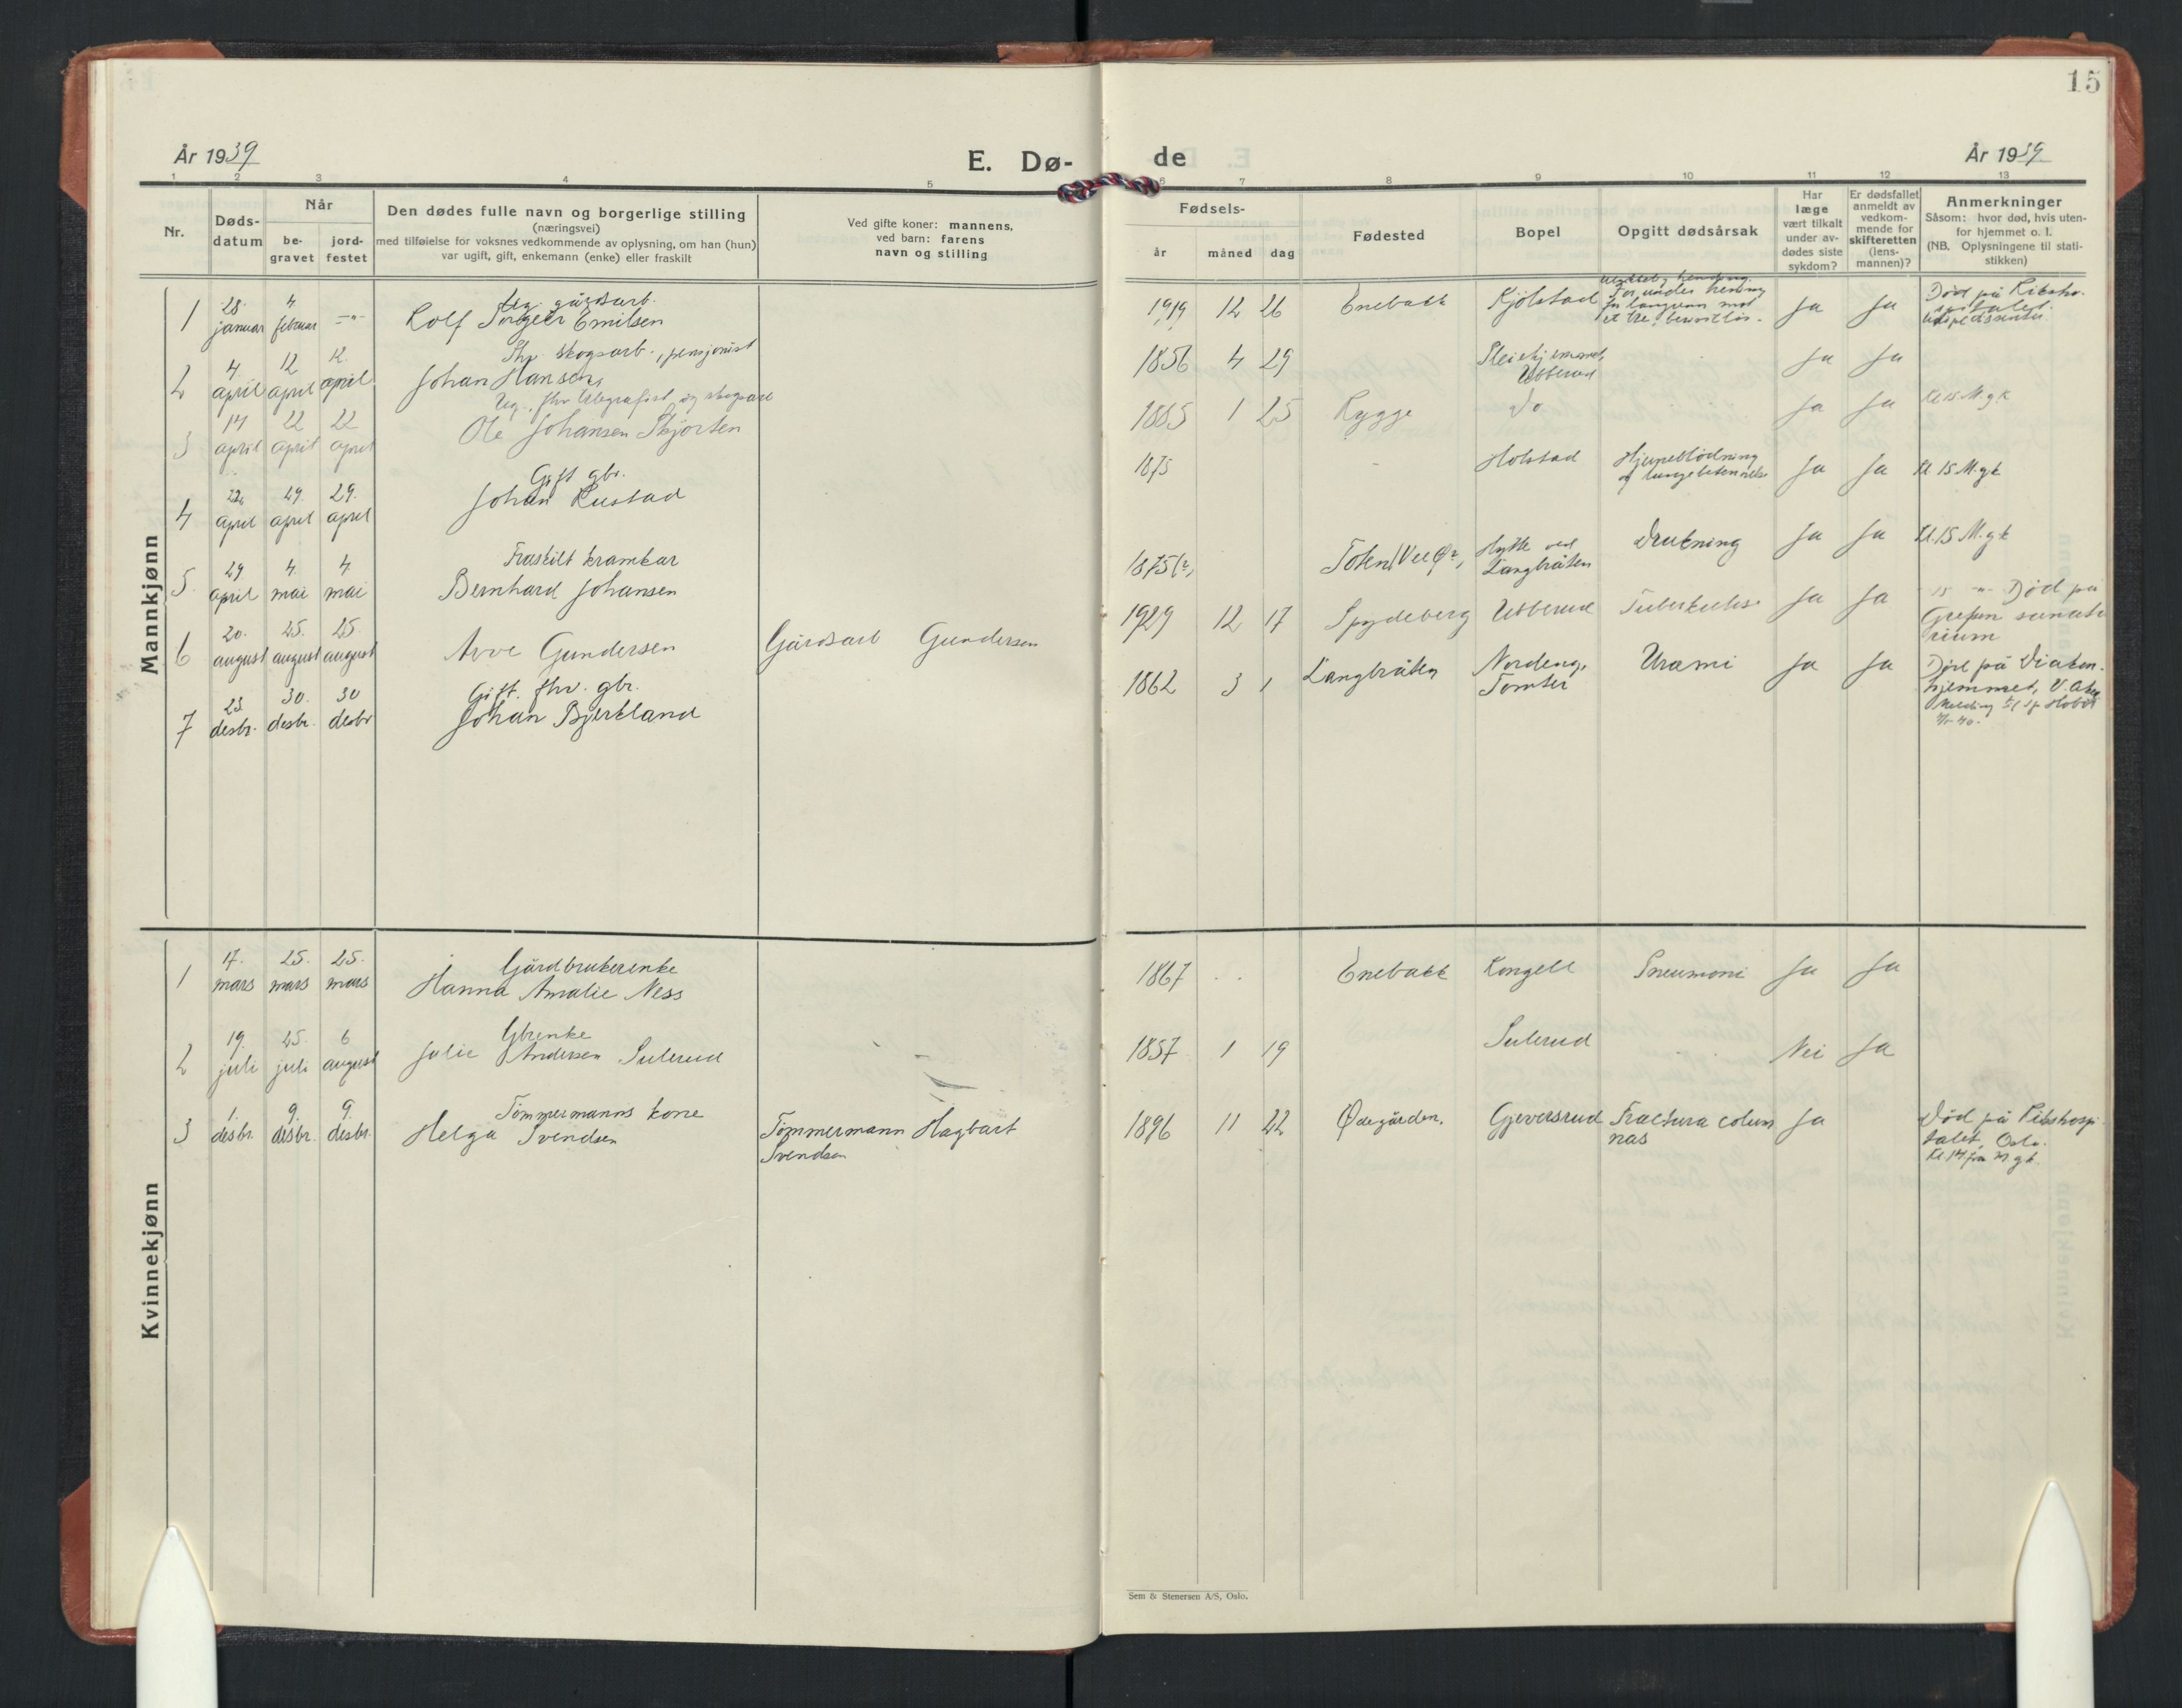 15
År 1939
E. Dø-
de
År 1939
1 2 3 4 5 6 7 8 9 10 11 12 13
Nr.
Døds-
datum
Når
be-
gravet
jord-
festet
Den dødes fulle navn og borgerlige stilling
(næringsvei)
med tilføielse for voksnes vedkommende av oplysning, om han (hun)
var ugift, gift, enkemann (enke) eller fraskilt
Ved gifte koner: mannens,
ved barn: farens
navn og stilling
Fødsels-
år
måned
dag
Fødested
Bopel
Opgitt dødsårsak
Har
læge
vært tilkalt
under av-
dødes siste
sykdom?
Er dødsfallet
anmeldt av
vedkom-
mende for
skifteretten
(lens-
mannen)?
Anmerkninger
Såsom: hvor død, hvis uten-
for hjemmet o. l.
(NB. Oplysningene til stati-
stikken)
Mannkjønn
1 28. januar 4. februar —"—
Ug. gårdsarb.
Rolf Emilsen
1919 12 26 Enebakk Kjölstad
Ja Ja
Død på Riksho-
spitalet.
2 4 april 12 april 12. april
Fhv. skogsarb., pensjonist
Johan Hansen,
1856 4 29
Pleiehjemmet,
Ubberud
Ja Ja
3 14 april 22 april 22 april
Ug., fhv. telegrafist og skogsarb
Ole Johansen Skjorten
1885 1 25 Rygge do Ja Ja Kl 15 M.g.k
4 22. april 29. april 29. april
Gift gbr.
Johan Rustad
1875 Holstad
Hjerneblödning
og lungebetennelse
Ja Ja Kl 15 M.gk
5 29 april 4. mai 4 mai
Fraskilt kramkar
Bernhard Johansen
1875(?) Toten
Hytte ved
Langbråten
Drukning Ja Ja Kl. 15 M.gk
6 20. august 25. august 25. august
Arve Gundersen Gårdsarb Gundersen
1929 12 17 Spydeberg Ubberud Tuberkulose Ja Ja
15 -"- Död på
Grefsen sanato
rium
7 23 desbr. 30. desbr. 30 desbr
Gift. fhv. gbr.
Johan Bjerkland
1862 3 1 Langbråten
Nordeng,
Tomter
Uræmi Ja Ja
Död på Diakon-
hjemmet, V. Aker
Kvinnekjønn
1 17. mars 25. mars 25. mars
Gårdbrukerenke
Hanna Amalie Ness
1867 Enebakk Rongell Pneumoni Ja Ja
2 19. juli 25. juli 6 august
Gbrenke
Julie Andersen Sulerud
1857 1 19 Sulerud Nei Ja
3 1. desbr. 9. desbr. 9. desbr.
Tömmermanns kone
Helga Svendsen
Tömmermann Hagbart
Svendsen
1896 11 22 Ödegården. Gjeversrud
Fractura colum
nas
Ja
Död på Rikshosp
talet, Oslo.
Kl 14 fra M gk.
Sem & Stenersen A/S, Oslo.